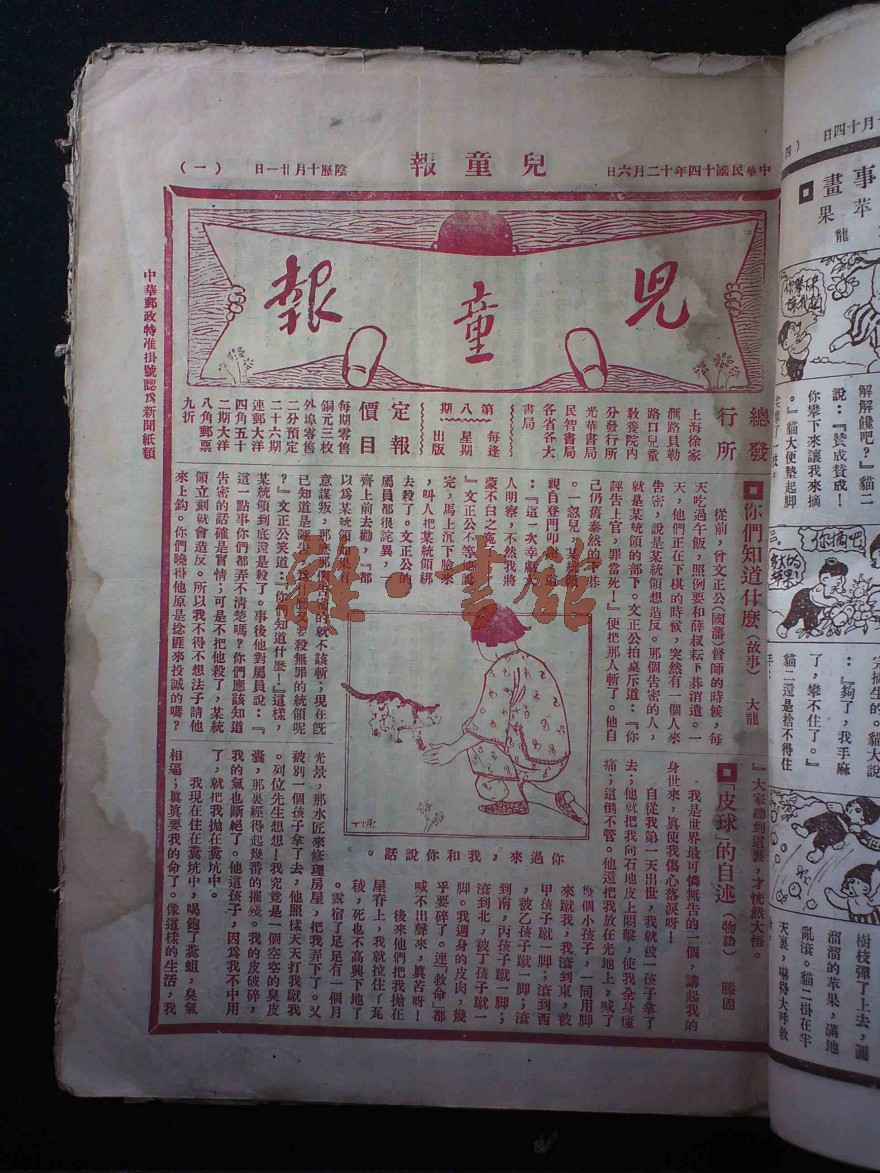 中華民國十四年十二月六日
兒童報
陰歷十月廿一日
（一）
兒童報
總發行所
上海徐家
滙路貝勒
路口兒童
教養院內
分發行所
光華書局
民智書局
各省各大
書局
第八期
每逢星期出版
定報價目
每期零售
銅元三枚
外埠零售
二分預定
二十六期
連郵大洋
四角五十
二期大洋
八角郵票
九折
你們知道什麼（故事） 大龍
從前，曾文正公（國藩）督師的時候，每
天吃過午飯，照例要和薛叔耘下碁消遣。一
天，他們正在下棋的時候，突然有一個人來
告密，說是某統領想造反。那個告密的人，
就是某統領的部下。文正公拍桌斥道：『你
誣告上官，罪當死！』便把那人斬了。他自
己仍舊泰然的下碁
。一忽兒，某統領
親自登門叩謝，道
：『這一次幸虧大
人明察，不然我將
蒙不白之冤……
』文正公不等他說
完，馬上沉下臉來
，叫人把某統領綁
去殺了。文正公的
屬員都很詫異，一
齊上前去勸，『都
以為某統領如果有
意謀叛，那麼那個告密的就不該斬；現在旣
已知道是誣告，為什麼又要殺無罪的統領呢
？』文正公笑道：『你們知道什麼！』這樣，
某統領到底還是殺了。事後他對屬員說：『
這一點事你們都弄不清楚嗎？你們應該知道
告密的話確是實情；可是不把他殺了，某統
領立刻就會造反。所以我不得不想法子請他
來上鈎。你們曉得他原是捻匪來投誠的嗎？
』大家聽到這裏，才恍然大悟。
「皮球」的自述（物語） 滕固
我是世界最可憐無告的一個，講起我的
身世來，眞使我傷心落淚呀！
自從我第一天出世，我就被一孩子拿了
去；他就把我向石地皮上閉擊，使我全身瘇
痛；這倒不管。他還把我放在光地上，喊了
幾個小孩子，一同用脚
來蹴我，我滾到東，被
甲孩子蹴一脚；滾到西
，被乙孩子蹴一脚；滾
到南，丙孩子蹴一脚；
滾到北，被丁孩子蹴一
脚。我週身的皮肉，幾
乎要碎了。連「救命」都
喊不出聲來，眞苦呀！
後來他們把我抛在
屋脊上，我就拉住了瓦
稜，死也不高興下地了
。露宿了足足有一個月
光景，那水匠來修理房屋，把我弄下了。又
被別一個孩子拿了去，他照樣天天打我蹴我
。列位先生想想！我究竟是一個空空的臭皮
囊，那裏經得起幾番的摧殘。我的皮破碎，
我的氣也斷絕了。他這孩子，因為我不中用
了，就把我抛在糞坑中。
我現在住在糞坑中，喝飽了糞蛆，臭氣
相逼；眞眞要我的命了。像這樣的生活，我
你過來，我和你說話。
中華郵政特准掛號認為新聞紙類
月十四日
（四
事畫
苹果
龍
你攀下來
你摘吧
解解饞吧？』貓二
說：『贊成贊成！
你攀下來讓我來摘
。』貓大便墊起脚
三
完摘生的。貓大說
：『夠了，我手麻
了，攀不住了。』
貓二還是捨不得住
手：
樹枝彈了上去，圓
溜溜的苹果，滿地
亂滾。貓二掛在半
天裏，嚇得大呼救